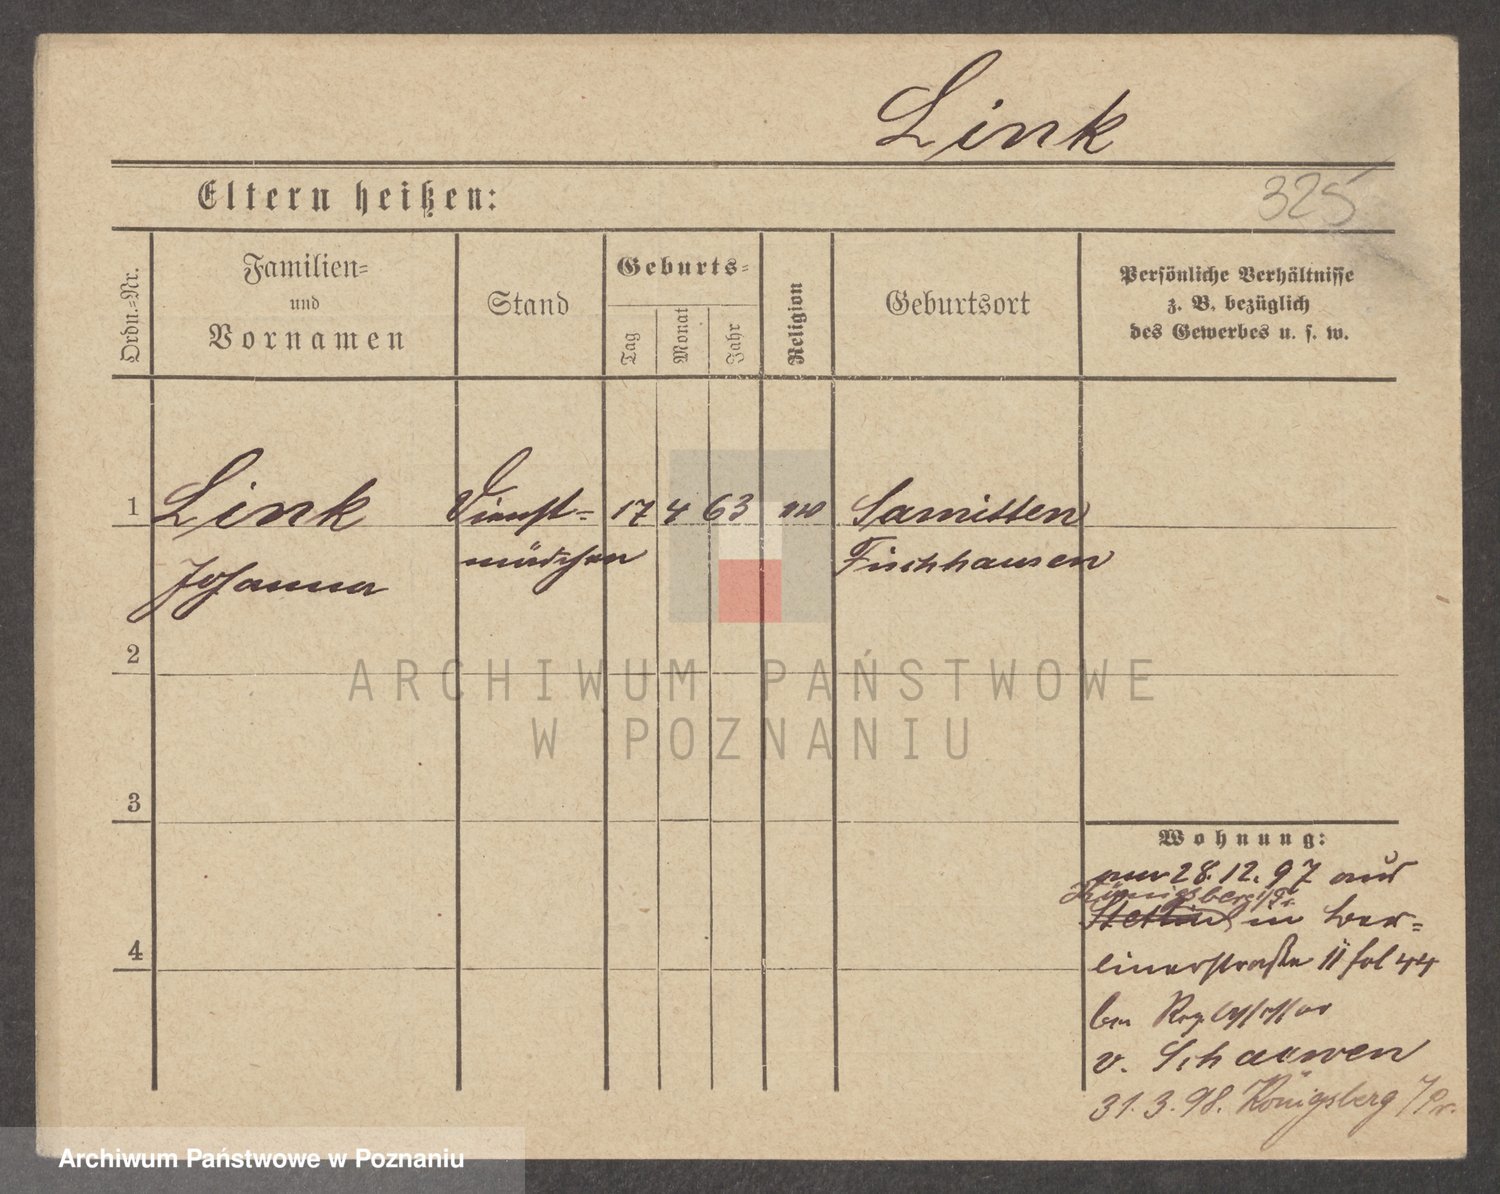 Link
Eltern heißen:
325
Ordn.=Nr.
Familien=
und
Vornamen
Stand
Geburts=
Tag
Monat
Jahr
Religion
Geburtsort
Persönliche Verhältnisse
z. B. bezüglich
des Gewerbes u. s. w.
1
Link
Johanna
Dienst=
mädchen
17 4 63
Samitten
Fischhausen
2
3
4
Wohnung:
28.12.97 aus
Königsberg i/Pr.
Stettin in Ber=
linerstraße 11 fol 44
bei Reg Assessor
v. Schaewen
31.3.98. Königsberg i/Pr.
ARCHIWUM PAŃSTWOWE
W POZNANIU
Archiwum Państwowe w Poznaniu